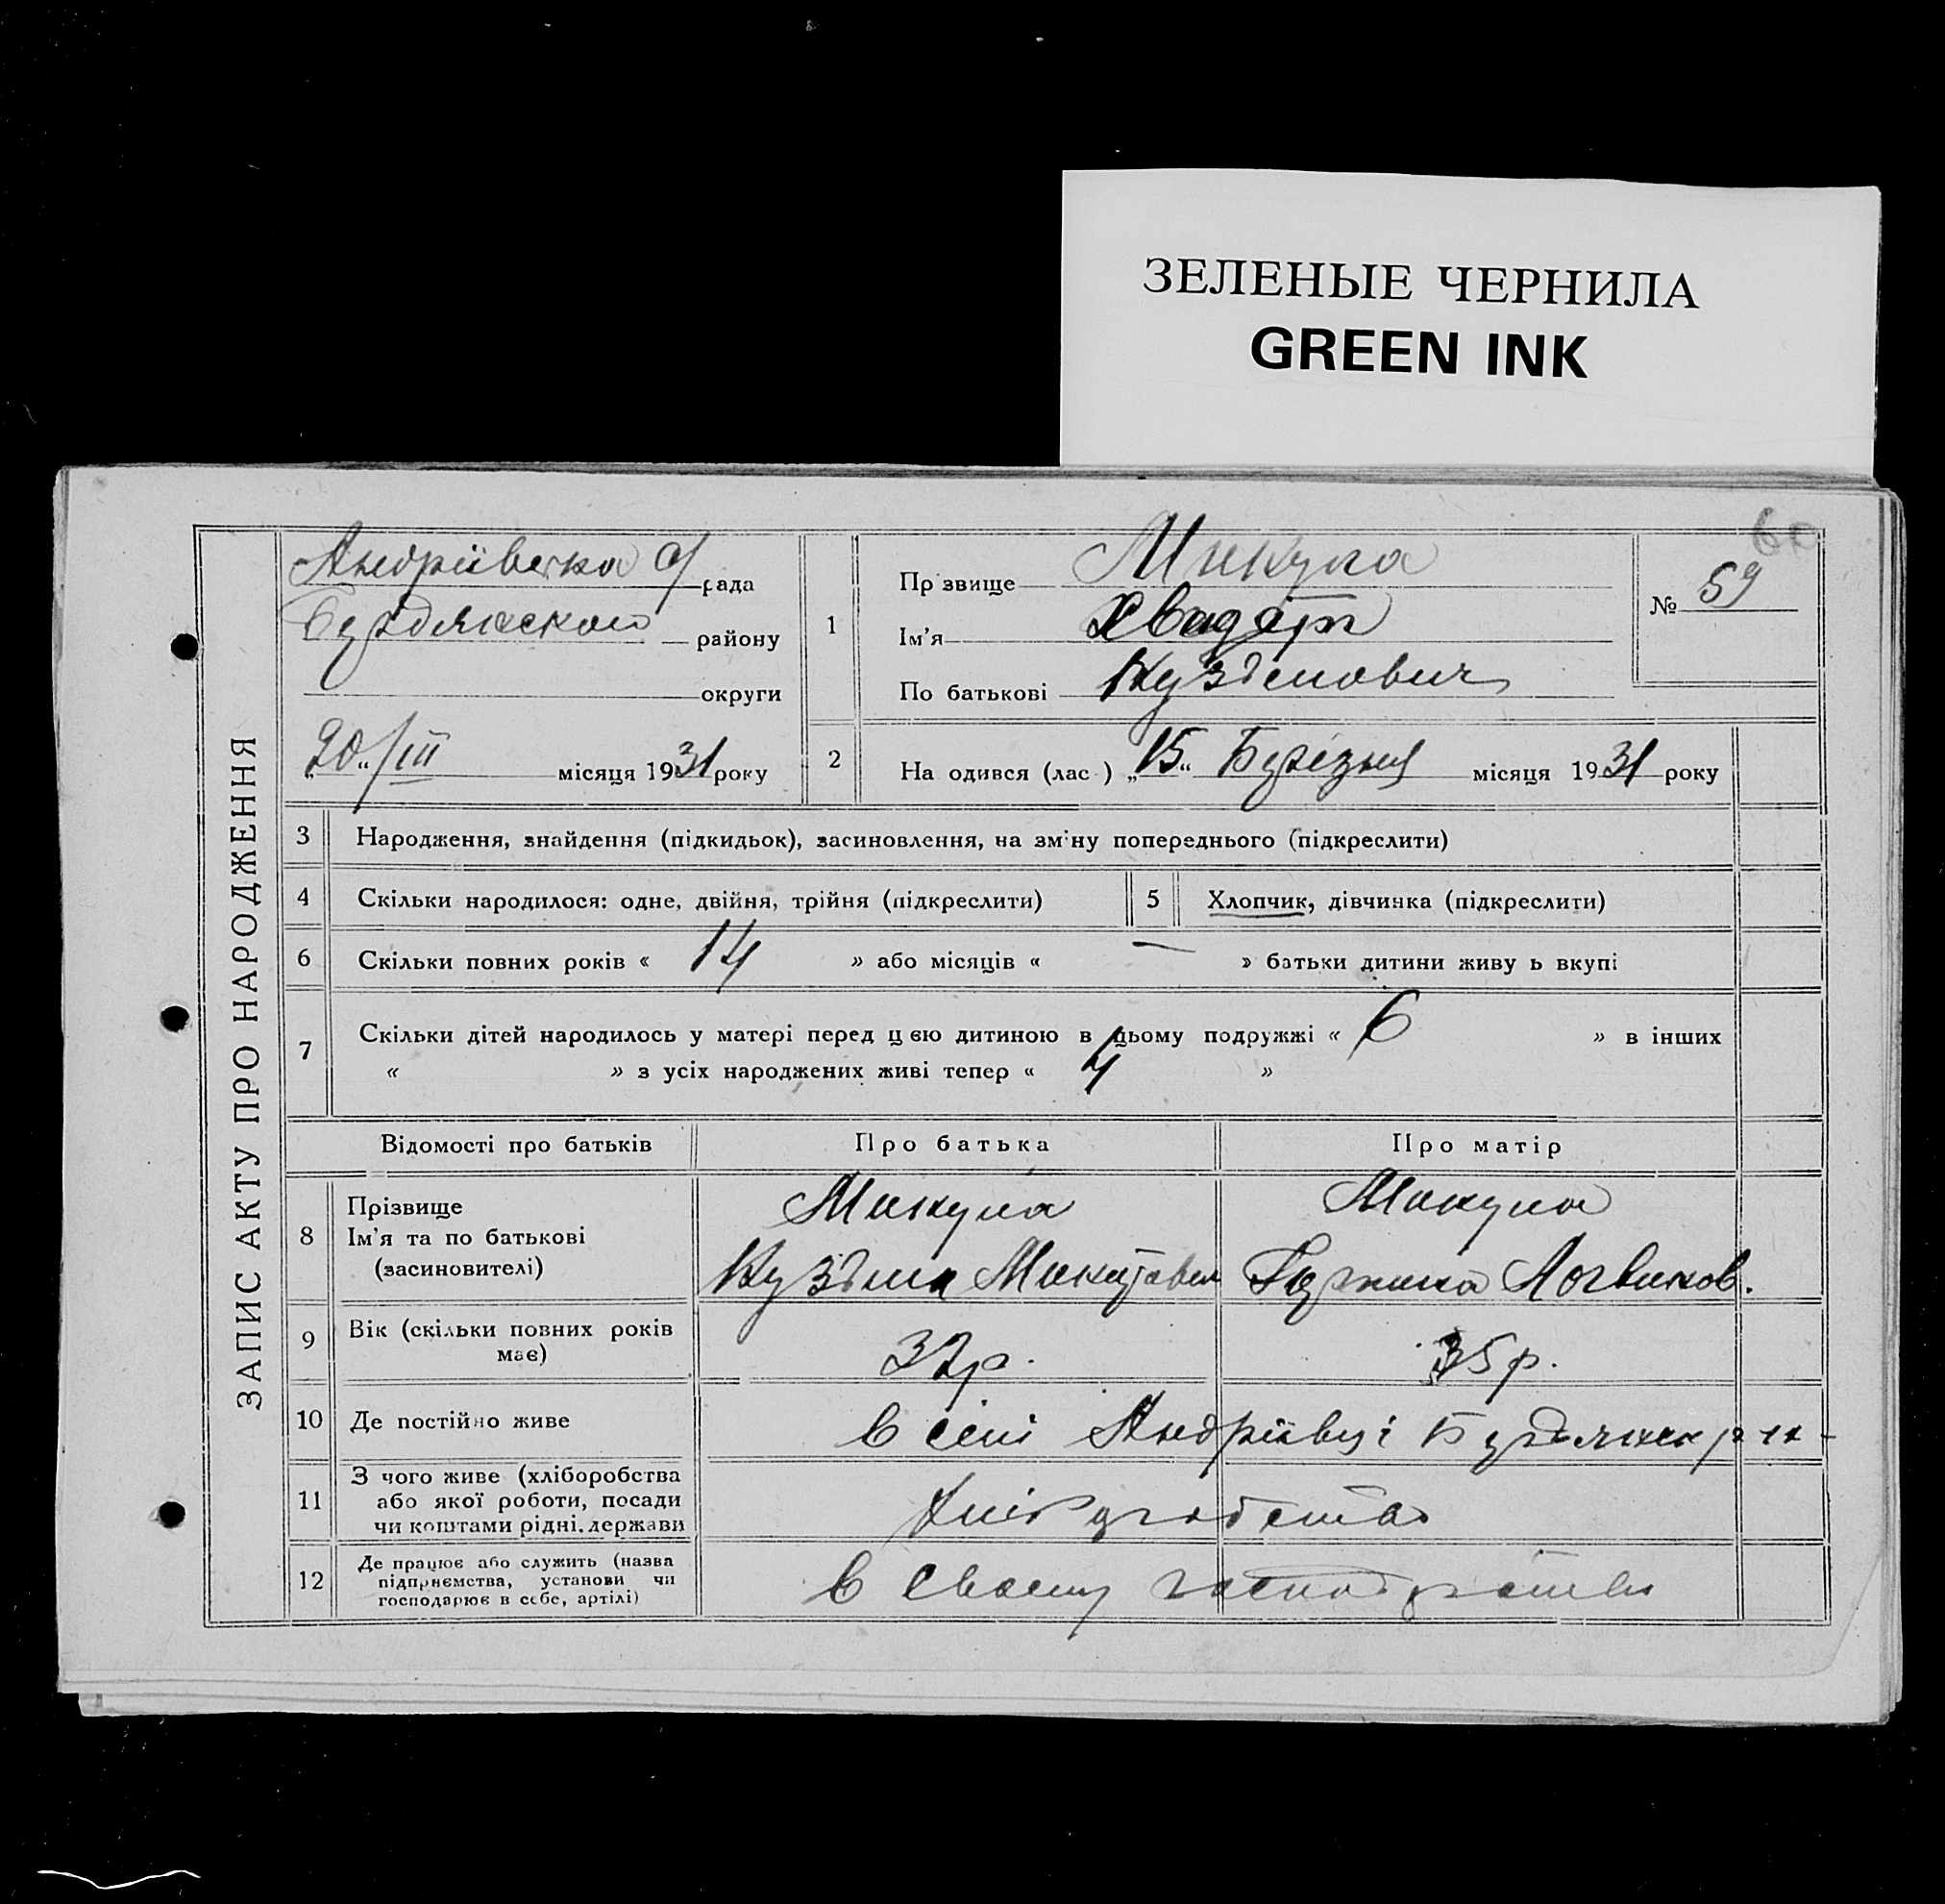 ЗЕЛЕНЫЕ ЧЕРНИЛА
GREEN INK
60
ЗАПИС АКТУ ПРО НАРОДЖЕННЯ
Андріївська с/рада
району
округи
„20“/III місяця 1931 року
1
Пр звище Микула
Ім'я
По батькові Кузьмович
№ 59
2
На одився (лас ) „15“ Березня місяця 1931 року
3 Народження, знайдення (підкидьок), засиновлення, на зміну попереднього (підкреслити)
4 Скільки народилося: одне, двійня, трійня (підкреслити)
5 Хлопчик, дівчинка (підкреслити)
6 Скільки повних років « 14 » або місяців « — » батьки дитини живу ь вкупі
7 Скільки дітей народилось у матері перед цією дитиною в цьому подружжі « 6 » в інших
« » з усіх народжених живі тепер « 4 »
Відомості про батьків Про батька Про матір
8 Прізвище
Ім'я та по батькові
(засиновителі)
Микула
Кузьма Микитович
Микула
Логвинов.
9 Вік (скільки повних років
має)
32р. 35р.
10 Де постійно живе в селі Андріївці
11 З чого живе (хліборобства
або якої роботи, посади
чи коштами рідні. держави
12 Де працює або служить (назва
підприємства, установи чи
господарює в себе, артілі)
в своему господрстві